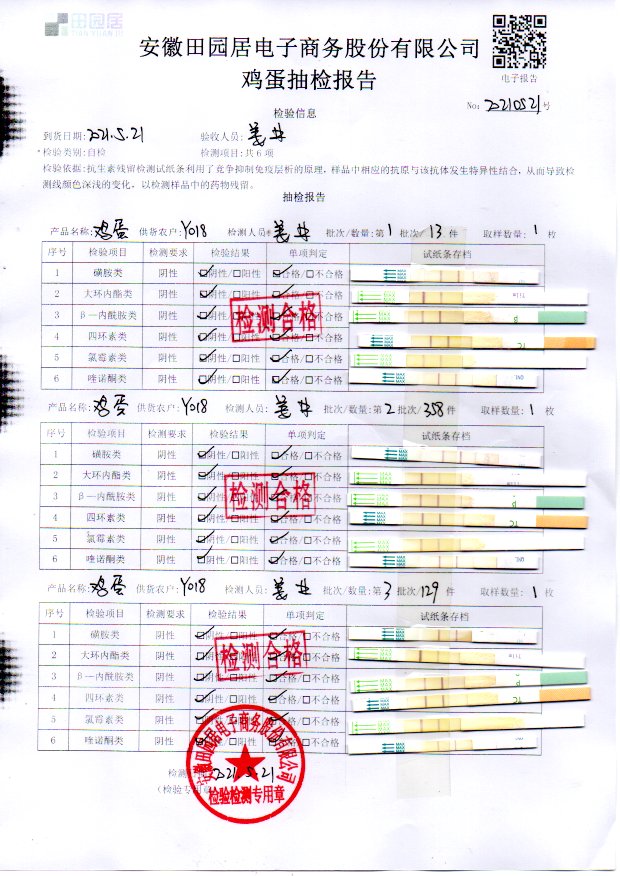 田园居
TIAN YUAN JU
安徽田园居电子商务股份有限公司
鸡蛋抽检报告
电子报告
No: 20210521号
检验信息
到货日期: 2021.5.21 验收人员:
*检验类别: 自检 检测项目: 共6项
检验依据: 抗生素残留检测试纸条利用了竞争抑制免疫层析的原理, 样品中相应的抗原与该抗体发生特异性结合, 从而导致检
测线颜色深浅的变化, 以检测样品中的药物残留。
抽检报告
产品名称: 鸡蛋 供货农户: Y018 检测人员: 批次/数量: 第1批次/13件 取样数量: 1枚
序号 检验项目 检测要求 检验结果 单项判定 试纸条存档
1 磺胺类 阴性 ☑阴性/☐阳性 ☑合格/☐不合格
2 大环内酯类 阴性 ☑阴性/☐阳性 ☑合格/☐不合格
3 β—内酰胺类 阴性 ☑阴性/☐阳性 ☑合格/☐不合格
4 四环素类 阴性 ☑阴性/☐阳性 ☑合格/☐不合格
5 氯霉素类 阴性 ☑阴性/☐阳性 ☑合格/☐不合格
6 喹诺酮类 阴性 ☑阴性/☐阳性 ☑合格/☐不合格
检测合格
产品名称: 鸡蛋 供货农户: Y018 检测人员: 批次/数量: 第2批次/358件 取样数量: 1枚
序号 检验项目 检测要求 检验结果 单项判定 试纸条存档
1 磺胺类 阴性 ☑阴性/☐阳性 ☑合格/☐不合格
2 大环内酯类 阴性 ☑阴性/☐阳性 ☑合格/☐不合格
3 β—内酰胺类 阴性 ☑阴性/☐阳性 ☑合格/☐不合格
4 四环素类 阴性 ☑阴性/☐阳性 ☑合格/☐不合格
5 氯霉素类 阴性 ☑阴性/☐阳性 ☑合格/☐不合格
6 喹诺酮类 阴性 ☑阴性/☐阳性 ☑合格/☐不合格
检测合格
产品名称: 鸡蛋 供货农户: Y018 检测人员: 批次/数量: 第3批次/129件 取样数量: 1枚
序号 检验项目 检测要求 检验结果 单项判定 试纸条存档
1 磺胺类 阴性 ☑阴性/☐阳性 ☑合格/☐不合格
2 大环内酯类 阴性 ☑阴性/☐阳性 ☑合格/☐不合格
3 β—内酰胺类 阴性 ☑阴性/☐阳性 ☑合格/☐不合格
4 四环素类 阴性 ☑阴性/☐阳性 ☑合格/☐不合格
5 氯霉素类 阴性 ☑阴性/☐阳性 ☑合格/☐不合格
6 喹诺酮类 阴性 ☑阴性/☐阳性 ☑合格/☐不合格
检测合格
检测 2021.5.21
(检验专用章
安徽田园居电子商务股份有限公司
检验检测专用章